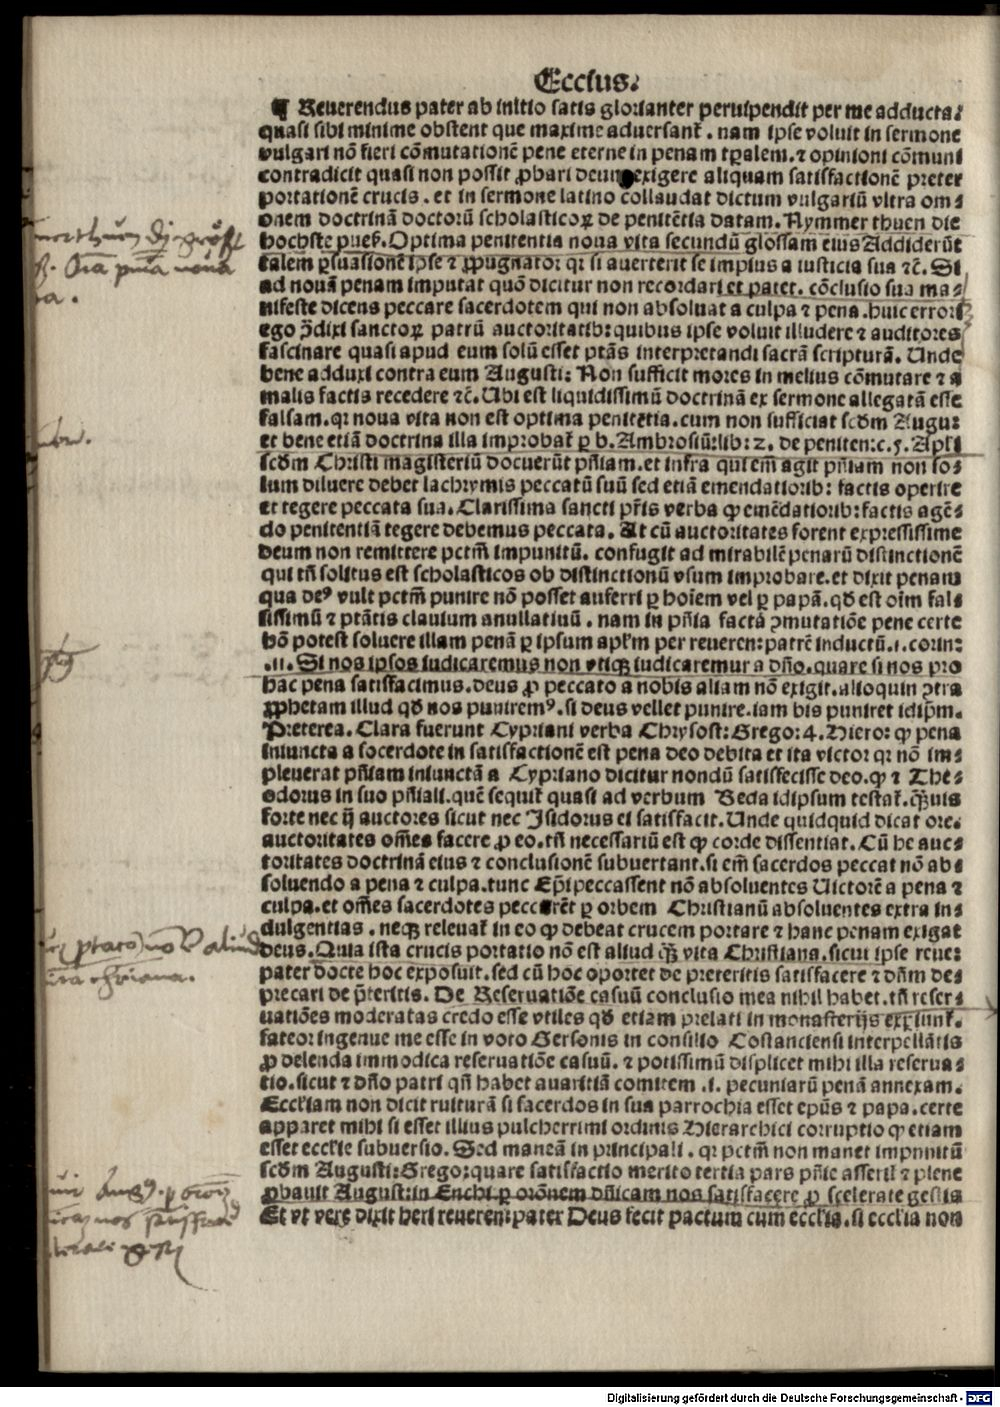 Eccius.
¶ Reuerendus pater ab initio satis glorianter peruipendit per me adducta:
quasi sibi minime obstent que maxime aduersant᷑. nam ipse voluit in sermone
vulgari nō fieri cōmutationē pene eterne in penam tp̄alem. ⁊ opinioni cōmuni
contradicit quasi non possit ꝓbari deum exigere aliquam satisfactionē preter
portationē crucis. et in sermone latino collaudat dictum vulgariū vltra om⸗
onem doctrinā doctorū scholasticoꝝ de penitētia datam. Nymmer thuen die
hochste pueß. Optima penitentia noua vita secundū glossam eius Addiderūt
talem ꝑsuasionē ipse ⁊ ꝓpugnator qꝛ si auerterit se impius a iusticia sua ⁊c̄. Si
ad nouā penam imputat quō dicitur non recordari et patet. cōclusio sua ma⸗
nifeste dicens peccare sacerdotem qui non absoluat a culpa ⁊ pena. huic errori
ego ꝯ̄dixi sanctoꝝ patrū auctoritatib: quibus ipse voluit illudere ⁊ auditores
fascinare quasi apud eum solū esset ptās interpretandi sacrā scripturā. Unde
bene adduxi contra eum Augusti: Non sufficit mores in melius cōmutare ⁊ a
malis factis recedere ⁊c̄. Ubi est liquidissimū doctrinā ex sermone allegatā esse
falsam. qꝛ noua vita non est optima penitētia. cum non sufficiat scd̄m Augu:
et bene etiā doctrina illa improbat᷑ ꝑ b. Ambrosiū: lib: 2. de peniten: c. 5. Apl̄i
scd̄m Christi magisteriū docuerūt pn̄iam. et infra qui em̄ agit pn̄iam non so⸗
lum diluere debet lachrymis peccatū suū sed etiā emendatiorib: factis operire
et tegere peccata sua. Clarissima sancti pr̄is verba ꝙ emēdatiorib: factis agē⸗
do penitentiā tegere debemus peccata. At cū auctoritates forent expressissime
deum non remittere pctm̄ impunitū. confugit ad mirabilē penarū distinctionē
qui tn̄ solitus est scholasticos ob distinctionū vsum improbare. et dixit penam
qua deꝰ vult pctm̄ punire nō posset auferri ꝑ hoīem vel ꝑ papā. qđ est oīm fal⸗
sissimū ⁊ ptātis clauium anullatiuū. nam in pn̄ia facta ꝑmutatiōe pene certe
hō potest soluere illam penā ꝑ ipsum apl̄m per reueren: patrē inductū. 1. corin:
.11. Si nos ipsos iudicaremus non vtiqꝫ iudicaremur a dn̄o. quare si nos pro
hac pena satisfacimus. deus ꝓ peccato a nobis aliam nō exigit. alioquin ꝯtra
ꝓphetam illud qđ nos puniremꝰ. si deus vellet punire. iam bis puniret idip̄m.
Preterea. Clara fuerunt Cypriani verba Chrysost: Grego: 4. Hiero: ꝙ pena
iniuncta a socerdote in satisfactionē est pena deo debita et ita victor qꝛ nō im⸗
pleuerat pn̄iam iniunctā a Cypriano dicitur nondū satisfecisse deo. ꝙ ⁊ The⸗
odorus in suo pn̄iali. quē sequit᷑ quasi ad verbum Beda idipsum testat᷑. qͣ̄uis
forte nec ij auctores sicut nec Isidorus ei satisfacit. Unde quidquid dicat ore.
auctoritates om̄es facere ꝓ eo. tn̄ necessariū est ꝙ corde dissentiat. Cū he auc⸗
toritates doctrinā eius ⁊ conclusionē subuertant. si em̄ sacerdos peccat nō ab⸗
soluendo a pena ⁊ culpa. tunc Ep̄i peccassent nō absoluentes Uictorē a pena ⁊
culpa. et om̄es sacerdotes peccarēt ꝑ orbem Christianū absoluentes extra in⸗
dulgentias. neqꝫ releuat᷑ in eo ꝙ debeat crucem portare ⁊ hanc penam exigat
deus. Quia ista crucis portatio nō est aliud qͣ̄ vita Christiana. sicut ipse reue:
pater docte hoc exposuit. sed cū hoc oportet de preteritis satisfacere ⁊ dn̄m de⸗
precari de p̄teritis. De Reseruatiōe casuū conclusio mea nihil habet. tn̄ reser⸗
uatiōes moderatas credo esse vtiles qđ etiam prelati in monasterijs expiunt᷑.
fateor ingenue me esse in voto Gersonis in consilio Costanciensi interpellātis
ꝓ delenda immodica reseruatiōe casuū. ⁊ potissimū displicet mihi illa reserua⸗
tio. sicut ⁊ dn̄o patri qn̄ habet auaritiā comitem .i. pecuniarū penā annexam.
Eccl̄iam non dicit ruiturā si sacerdos in sua parrochia esset ep̄us ⁊ papa. certe
apparet mihi si esset illius pulcherrimi ordinis Hierarchici corruptio ꝙ etiam
esset eccl̄ie subuersio. Sed maneā in principali. qꝛ pctm̄ non manet impunitū
scd̄m Augusti: Grego: quare satisfactio merito tertia pars pn̄ie asserit᷑ ⁊ plene
ꝓbauit August: in Enchi. ꝑ orōnem dn̄icam nos satisfacere ꝓ scelerate gestis
Et vt vere dixit heri reueren: pater Deus fecit pactum cum eccl̄ia. si eccl̄ia non
Digitalisierung gefördert durch die Deutsche Forschungsgemeinschaft - DFG